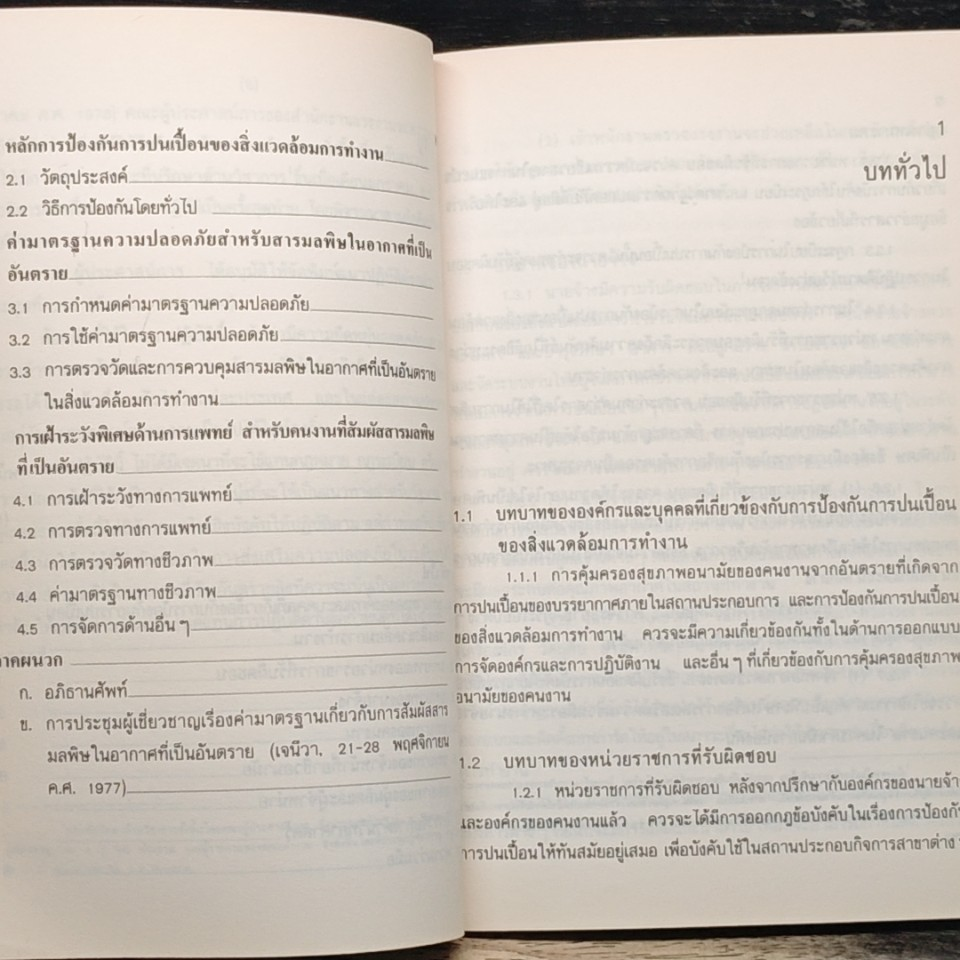 หลักการป้องกันการปนเปื้อนของสิ่งแวดล้อมการทำงาน
2.1 วัตถุประสงค์
2.2 วิธีการป้องกันโดยทั่วไป
ค่ามาตรฐานความปลอดภัยสำหรับสารมลพิษในอากาศที่เป็น
อันตราย
3.1 การกำหนดค่ามาตรฐานความปลอดภัย
3.2 การใช้ค่ามาตรฐานความปลอดภัย
3.3 การตรวจวัดและการควบคุมสารมลพิษในอากาศที่เป็นอันตราย
ในสิ่งแวดล้อมการทำงาน
การเฝ้าระวังพิเศษด้านการแพทย์ สำหรับคนงานที่สัมผัสสารมลพิษ
ที่เป็นอันตราย
4.1 การเฝ้าระวังทางการแพทย์
4.2 การตรวจทางการแพทย์
4.3 การตรวจวัดทางชีวภาพ
4.4 ค่ามาตรฐานทางชีวภาพ
4.5 การจัดการด้านอื่น ๆ
าคผนวก
ก. อภิธานศัพท์
ข. การประชุมผู้เชี่ยวชาญเรื่องค่ามาตรฐานเกี่ยวกับการสัมผัสสาร
มลพิษในอากาศที่เป็นอันตราย (เจนีวา, 21-28 พฤศจิกายน
ค.ศ. 1977)
1
บททั่วไป
1.1 บทบาทขององค์กรและบุคคลที่เกี่ยวข้องกับการป้องกันการปนเปื้อน
ของสิ่งแวดล้อมการทำงาน
1.1.1 การคุ้มครองสุขภาพอนามัยของคนงานจากอันตรายที่เกิดจาก
การปนเปื้อนของบรรยากาศภายในสถานประกอบการ และการป้องกันการปนเปื้อน
ของสิ่งแวดล้อมการทำงาน ควรจะมีความเกี่ยวข้องกันทั้งในด้านการออกแบบ
การจัดองค์กรและการปฏิบัติงาน และอื่น ๆ ที่เกี่ยวข้องกับการคุ้มครองสุขภาพ
อนามัยของคนงาน
1.2 บทบาทของหน่วยราชการที่รับผิดชอบ
1.2.1 หน่วยราชการที่รับผิดชอบ หลังจากปรึกษากับองค์กรของนายจ้า
และองค์กรของคนงานแล้ว ควรจะได้มีการออกกฎข้อบังคับในเรื่องการป้องกัน
การปนเปื้อนให้ทันสมัยอยู่เสมอ เพื่อบังคับใช้ในสถานประกอบกิจการสาขาต่าง